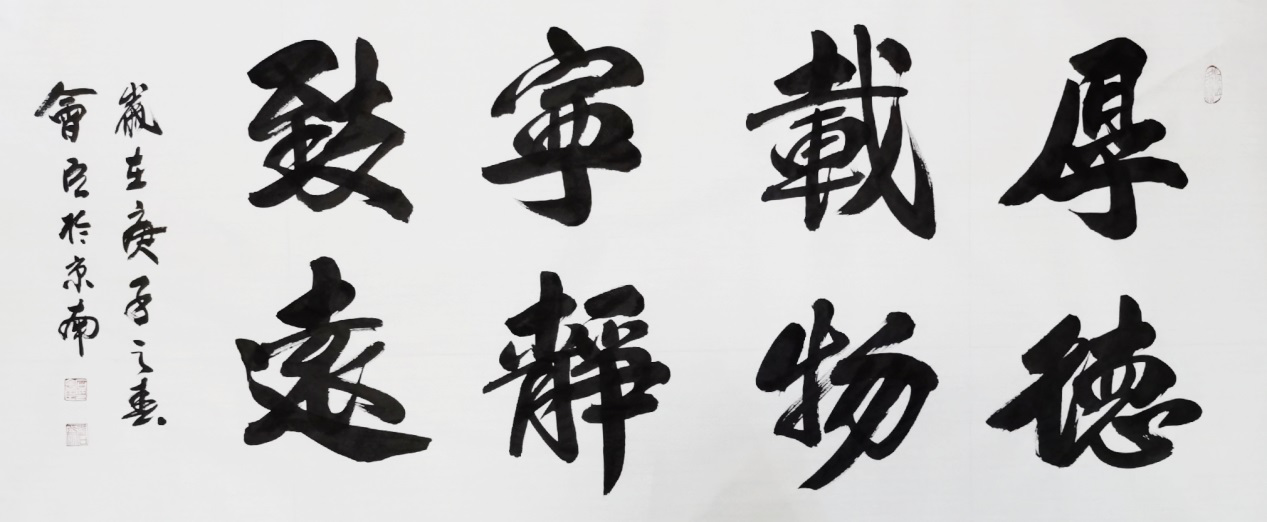 厚德
載物
寧靜
致遠
歲在庚子之春
會臣於京南